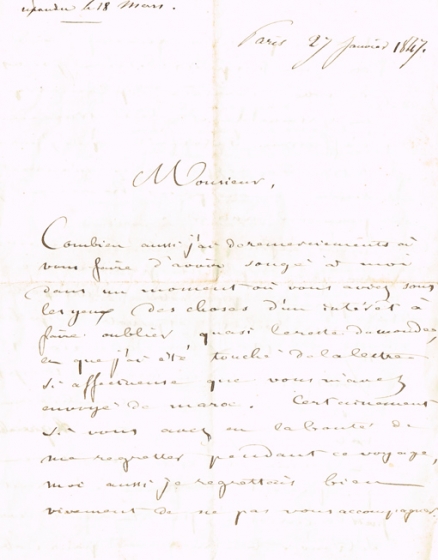 répondu le 18 Mars.
Paris 27 Janvier 1847.
Monsieur,
Combien aussi j'ai de remerciements à
vous faire d'avoir songé à moi
dans un moment où vous aviez sous
les yeux des choses d'un intérêt à
faire oublier quasi le reste du monde,
et que j'ai été touché de la lettre
si affectueuse que vous m'avez
envoyé de maroc. Certainement
si vous avez eu la bonté de
me regretter pendant ce voyage,
moi aussi je regrettais bien
vivement de ne pas vous accompagner